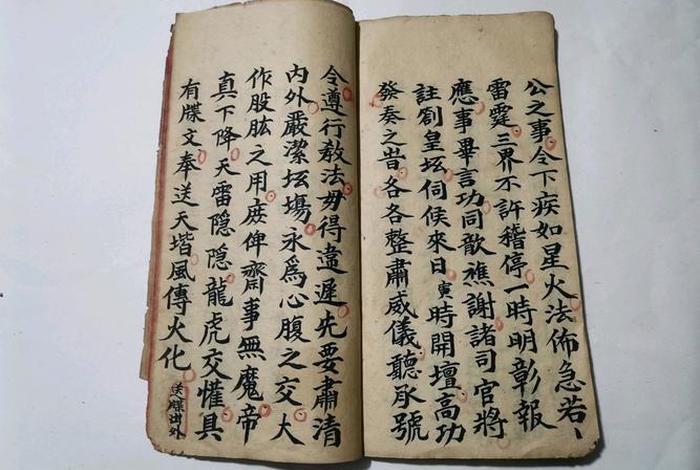 公之事令下疾如星火法佈急若丶
雷霆三界不許稽停一時明彰報
應事畢言功同歆樵謝諸司官將
註劄皇坛伺候來日寅時開壇高功
發奏之昔各各整肅威儀聽承號
令遵行教法毋得違遲先要肅清
内外嚴潔坛塲永爲心腹之交大
作股肱之用庶俾齋事無魔帝
真下降天雷隐隐龍虎交懽具
有牒文奉送天堦風傳火化
送牒出外